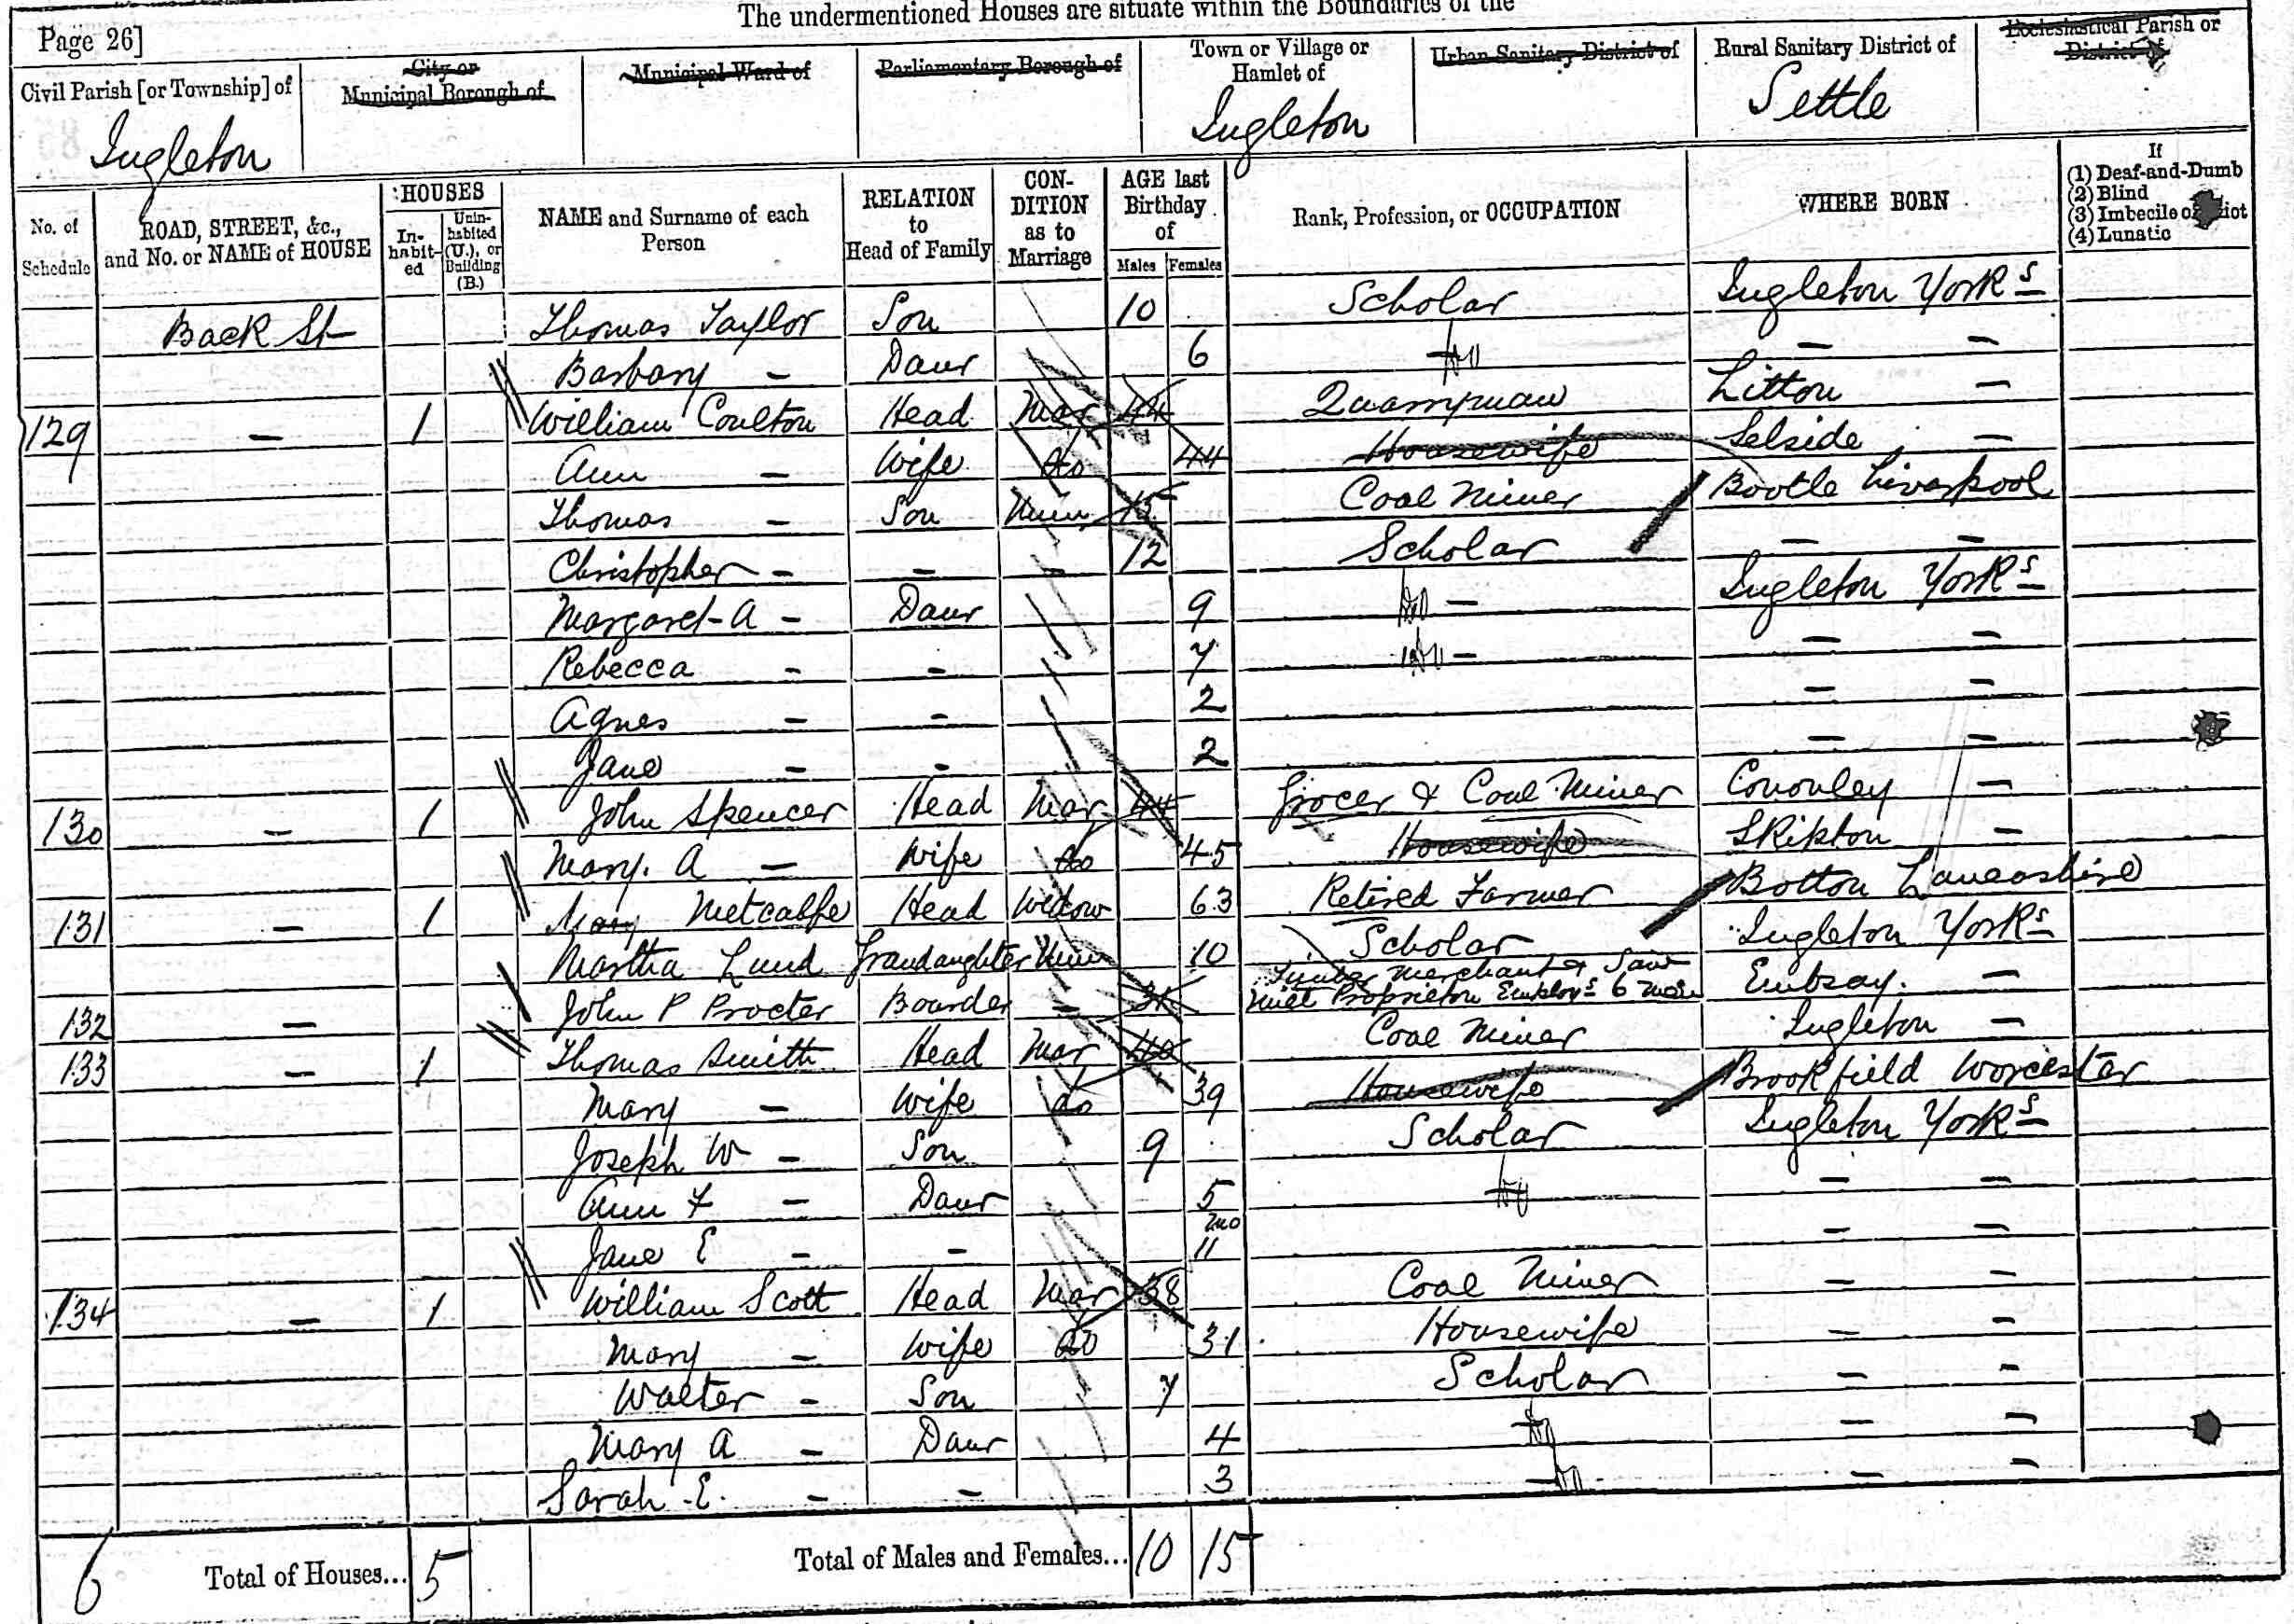 The undermentioned Houses are situate within the Boundaries of the
Page 26]
Civil Parish [or Township] of
Ingleton
City or
Municipal Borough of
Municipal Ward of
Parliamentary Borough of
Town or Village or
Hamlet of
Ingleton
Urban Sanitary District of
Rural Sanitary District of
Settle
Ecclesiastical Parish or
District of
No. of
Schedule
ROAD, STREET, &c.,
and No. or NAME of HOUSE
HOUSES
In-
habit-
ed
Unin-
habited
(U.), or
Building
(B.)
NAME and Surname of each
Person
RELATION
to
Head of Family
CON-
DITION
as to
Marriage
AGE last
Birthday
of
Males Females
Rank, Profession, or OCCUPATION
WHERE BORN
If
(1) Deaf-and-Dumb
(2) Blind
(3) Imbecile or Idiot
(4) Lunatic
Back St Thomas Taylor Son 10 Scholar Ingleton Yorks
Barbary - Daur 6 do - -
129 - 1 William Coulton Head Mar 44 Litton -
Ann - Wife do 44 Housewife Selside -
Thomas - Son Unm 15 Coal Miner Bootle Liverpool
Christopher - - - 12 Scholar - -
Margaret A - Daur 9 do - Ingleton Yorks
Rebecca - - 7 do - - -
Agnes - - 2 - -
Jane - - 2 - -
130 - 1 John Spencer Head Mar 44 Grocer & Coal Miner Cononley -
Mary. A - Wife do 45 Housewife Skipton -
131 - 1 Mary Metcalfe Head Widow 63 Retired Farmer Botton Lancashire
Martha Lund Grandaughter Unm 10 Scholar Ingleton Yorks
132 - John P Procter Boarder - 31 Timber Merchant & Saw
Mill Proprietor Employs 6 men Embsay. -
133 - 1 Thomas Smith Head Mar 40 Coal Miner Ingleton -
Mary - Wife do 39 Housewife Brookfield Worcester
Joseph W - Son 9 Scholar Ingleton Yorks
Ann F - Daur 5 do - -
Jane E - - 11 mo - -
134 - 1 William Scott Head Mar 38 Coal Miner - -
Mary - Wife do 31 Housewife - -
Walter - Son 7 Scholar - -
Mary A - Daur 4 do - -
Sarah E. - - 3 do - -
6 Total of Houses... 5 Total of Males and Females... 10 15